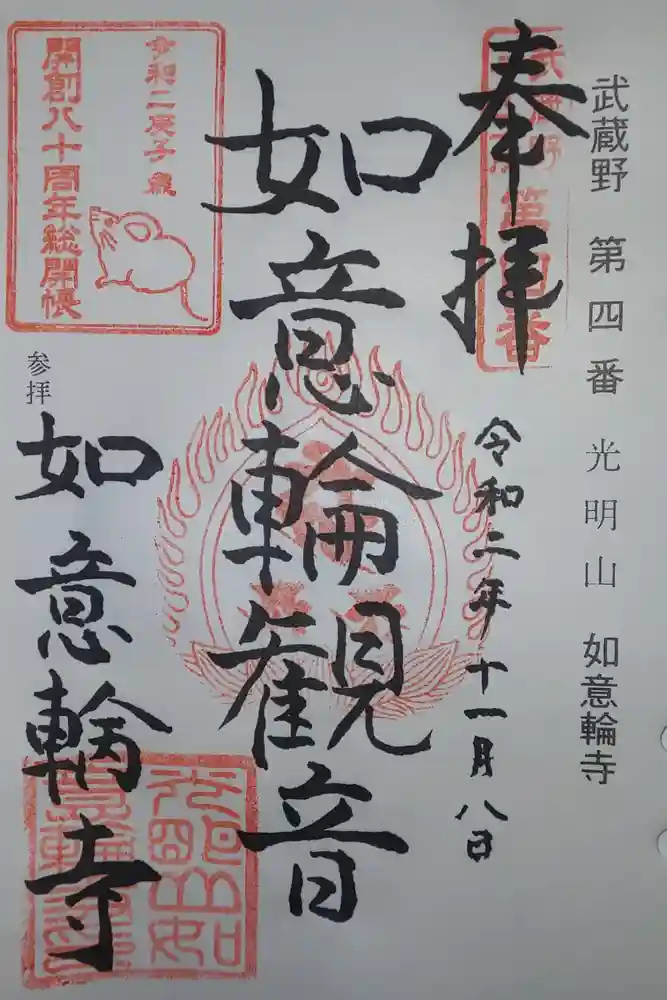 武蔵野 第四番 光明山 如意輪寺
奉拝
第四番
令和二年十一月八日
如意輪観音
令和二庚子歳
開創八十周年総開帳
参拝
如意輪寺